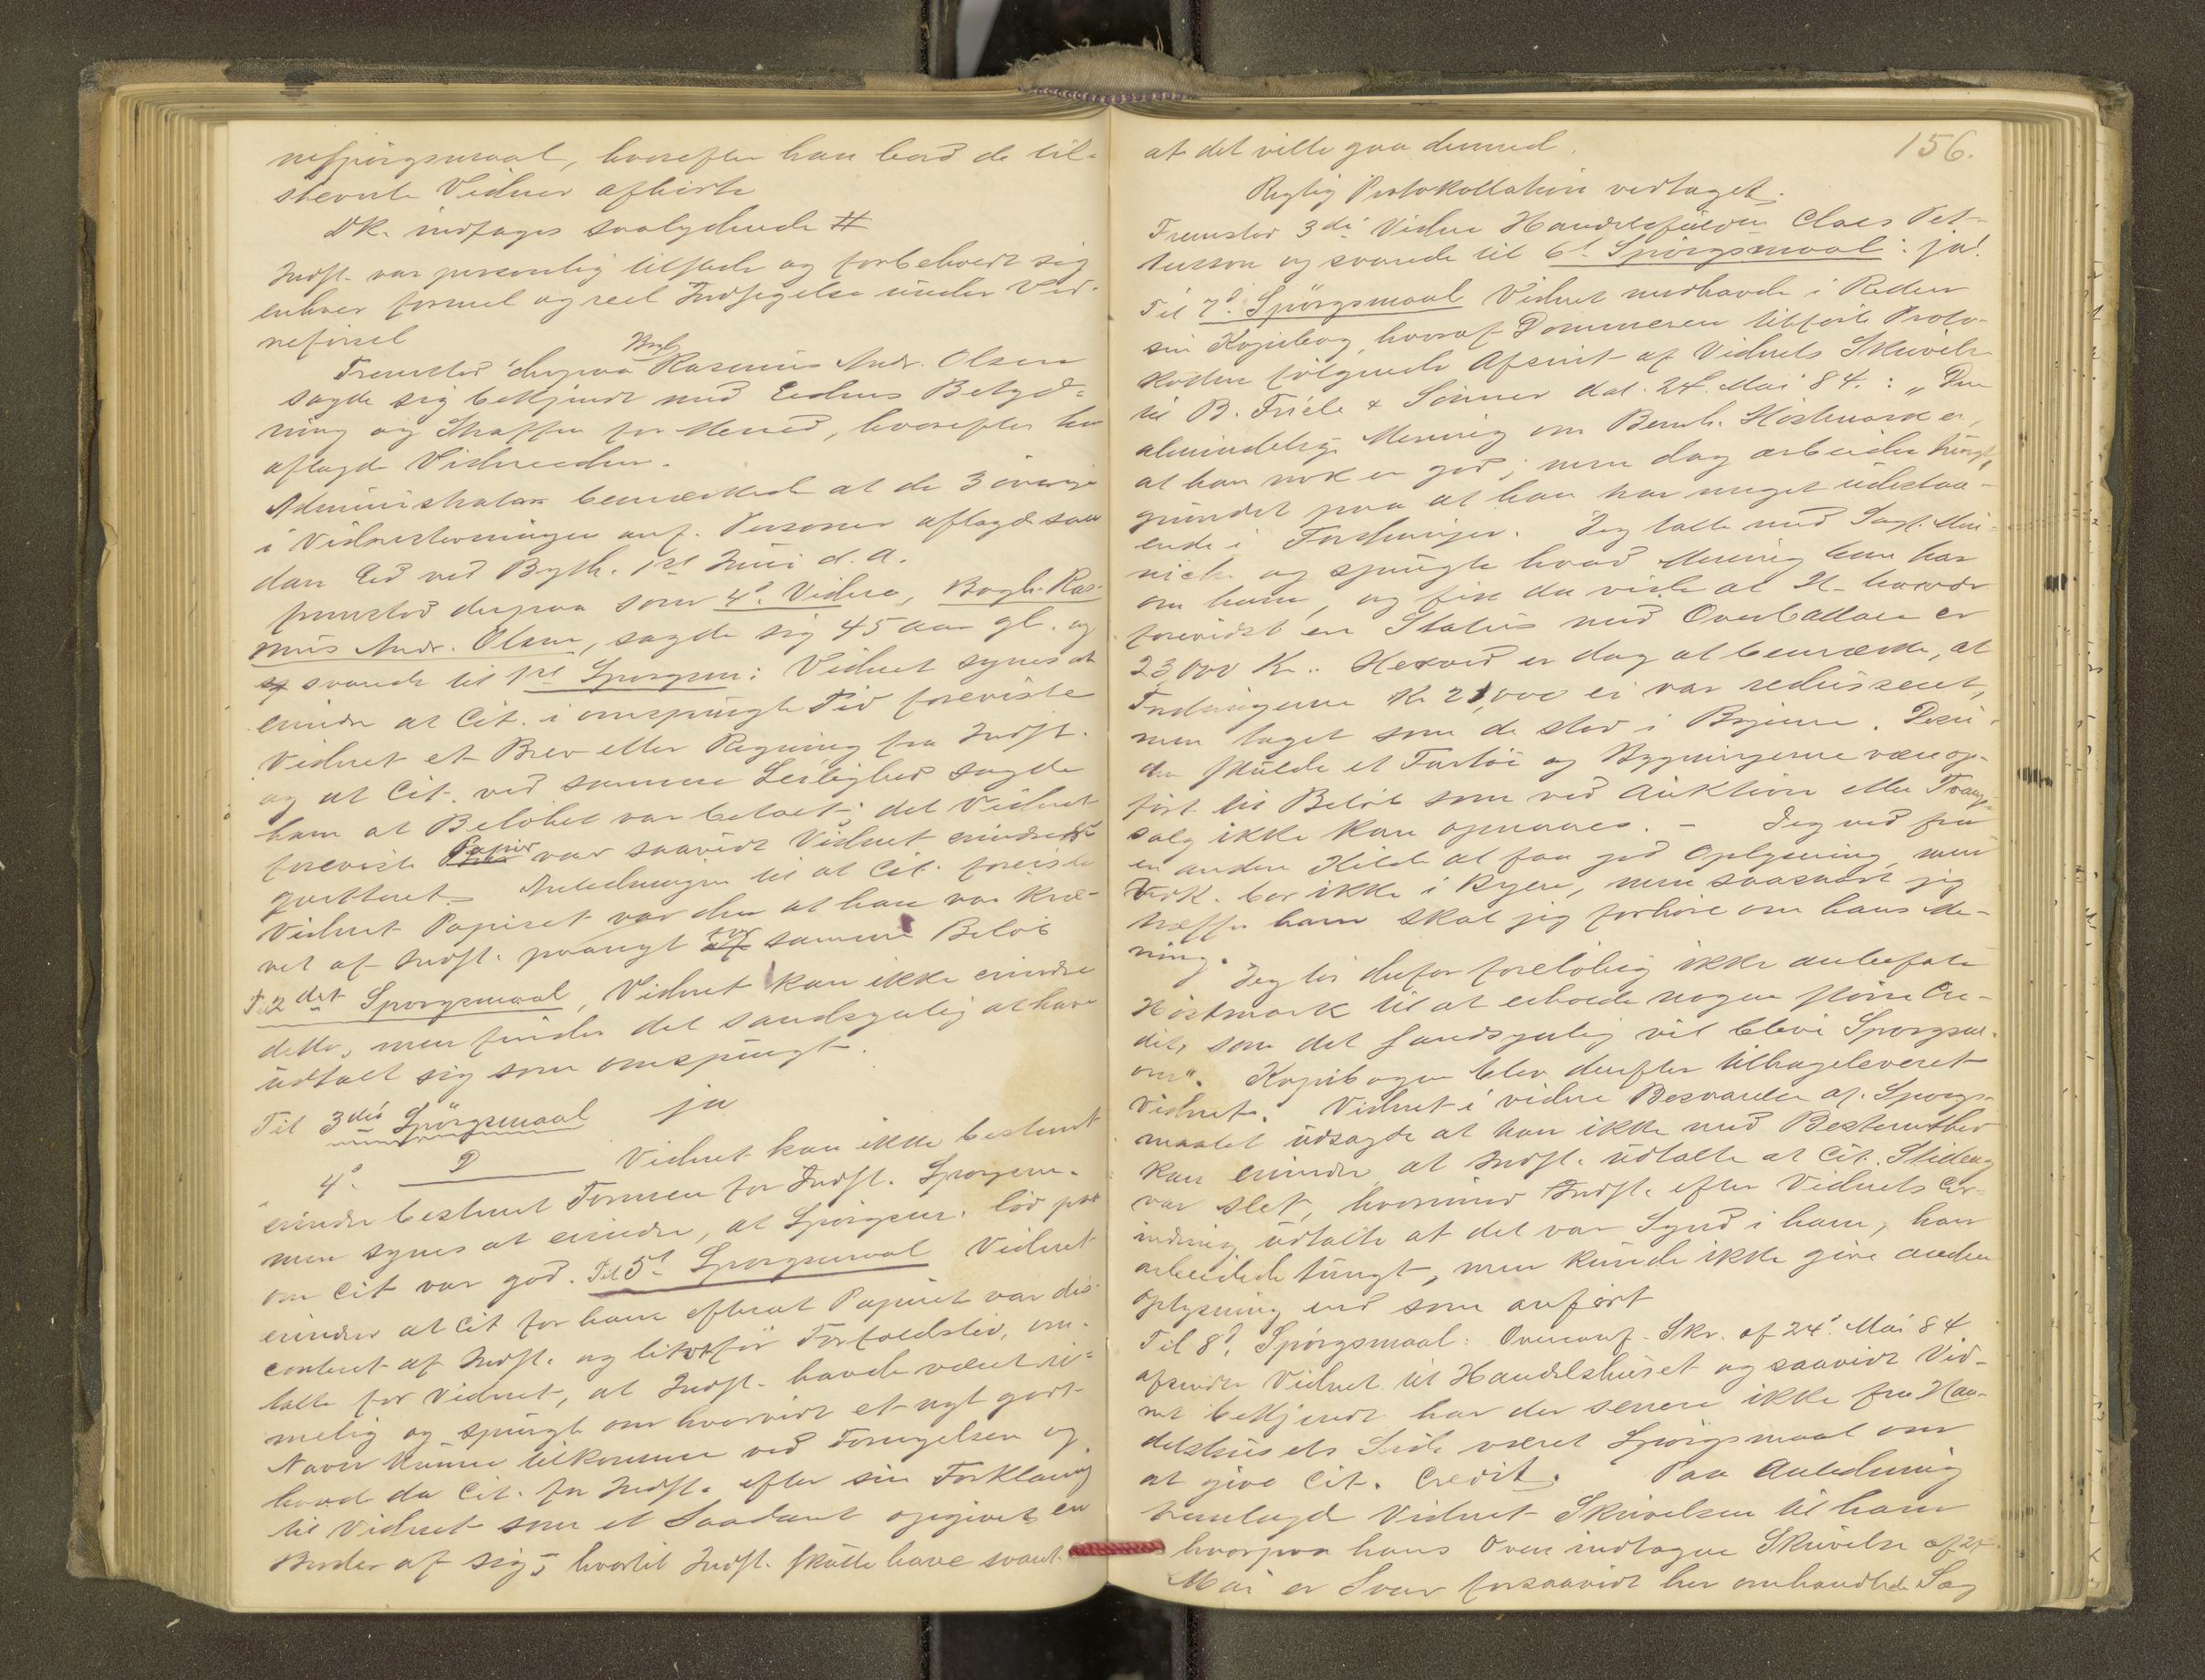 nespörgsmaal, hvorefter han bad de til-
stevnte Vidner afhörte
DK. indtages saalydende #
Indst. var personlig tilstede og forbeholdt sig
enhver formel og reel Indsigelse under Vid-
neförsel
Fremstod derpaa Rasmus Andr. Olsen
sagde sig bekjendt med Eedens Betyd-
ning og Straffen for Meened, hvorefter han
aflagde Vidneeden.
Administrator bemærkede at de 3 övrige
i Vidnestevningen anf. Personer aflagde saa
dan Ed ved Byth. 1st Juni d. A.
fremstod derpaa som 4d. Vidne, Bogh. Ras-
mus Andr. Olsen, sagde sig 45 Aar gl. og
svarede til 1ste Spörgsm: Vidnet synes at
erindre at Cit. i omspurgte Tid foreviste
Vidnet et Brev eller Regning fra Indst.
og at Cit. ved samme Leilighed sagde
ham at Belöbet var betalt; det Vidnet
foreviste Papir var saavidt Vidnet erindrer
qvitteret. Anledningen til at Cit. foreviste
Vidnet Papiret var den at han var kræ-
vet af Indst. paanyt for samme Belöb
Til 2det Spörgsmaal, Vidnet kan ikke erindre
dette, men finder det sandsynlig at have
udtalt sig som omspurgt.
Til 3die Spörgsmaal ja
4d. D Vidnet kan ikke bestemt
erindre bestemt Formen for Indst. Spörgsm.
men synes at erindre, at Spörgsm. löd paa
om Cit var god. Til 5t Spörgsmaal Vidnet
erindrer at Cit for ham efterat Papiret var dis-
conteret af Indst. og lidt för Forfaldstid, om-
talte for Vidnet, at Indst. havde været ri-
melig og spurgt om hvorvidt et nyt godt
Navn kunne tilkomme ved Fornyelsen og
hvad da Cit. for Indst. efter sin Forklaring
til Vidnet som et Saadant opgivet en
Broder af sig, hvortil Indst. skulle have svaret
156.
at det ville gaa dermed.
Rigtig Protokollation vedtaget.
Fremstod 3die Vidne Handelsfuldm Claes Pet-
tersson og svarede til 6t Spörgsmaal: ja!
Til 7d. Spörgsmaal Vidnet medhavde i Retten
sin Kopibog, hvoraf Dommeren tilförte Proto-
kollen fölgende Afsnit af Vidnets Skrivelse
til B. Friele & Sönner dat. 24. Mai 84.: „Den
almindelige Mening om Bernh. Höstmark er,
at han nok er god; men dog arbeider tungt,
grundet paa at han har meget udestaa-
ende i Fordringer. Jeg talte med Sagf. Mü-
nich og spurgte hvad Mening han har
om ham, og fik da vide at H. havde
forevist en Status med Overballace er
23,000 Kr. Herved er dog at bemærke, at
Fordringerne Kr 21,000 ei var reduseret,
men taget som de stod i Bögerne. Desu-
den skulde et Fartöi og Bygningerne være op-
fört til Belöb som ved Auktion eller Tvangs-
salg ikke kan opnaaes. – Jeg ved fra
en anden Kilde at faa god Oplysning, men
Vedk. bor ikke i Byen, men saasnart jeg
træffer ham skal jeg forhöre om hans Me-
ning.
Jeg tör derfor forelöbig ikke anbefale
Höstmark til at erholde nogen större Cre-
dit, som det sandsynlig vil blive Spörgsm.
om“. Kopibogen blev derefter tilbageleveret
Vidnet. Vidnet i videre Besvarelse af Spörgs-
maalet udsagde at han ikke med Bestemthed
kan erindre at Indst. udtalte at Cit. Stilling
var slet, hvorimod Indst. efter Vidnets Er-
indring udtalte at det var Synd i ham, han
arbeidede tungt, men kunde ikke give anden
Oplysning end som anfört
Til 8d. Spörgsmaal: Ovenanf. Skr. af 24d. Mai 84
afsendte Vidnet til Handelshuset og saavidt Vid-
net bekjendt har der senere ikke fra Han-
delshusets Side været Spörgsmaal om
at give Cit. Credit. Paa Anledning
fremlagde Vidnet Skrivelsen til ham
hvorpaa hans Oven indtagne Skrivelse af 24
Mai er Svar forsaavidt her omhandlede Sag